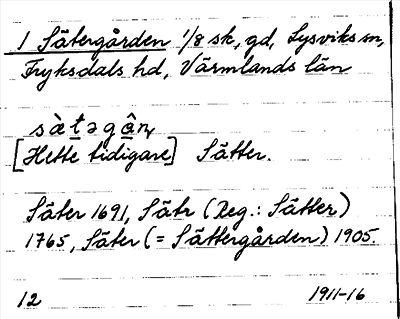 1 Sätergården 1/8 sk, gd, Lysviks sn,
Fryksdals hd, Värmlands län
sæ̀t̲əgå̂n̥
[Hette tidigare] Sätter.
Säter 1691, Sätr (Reg.: Sätter)
1765, Säter (= Sättergården) 1905.
12 1911-16